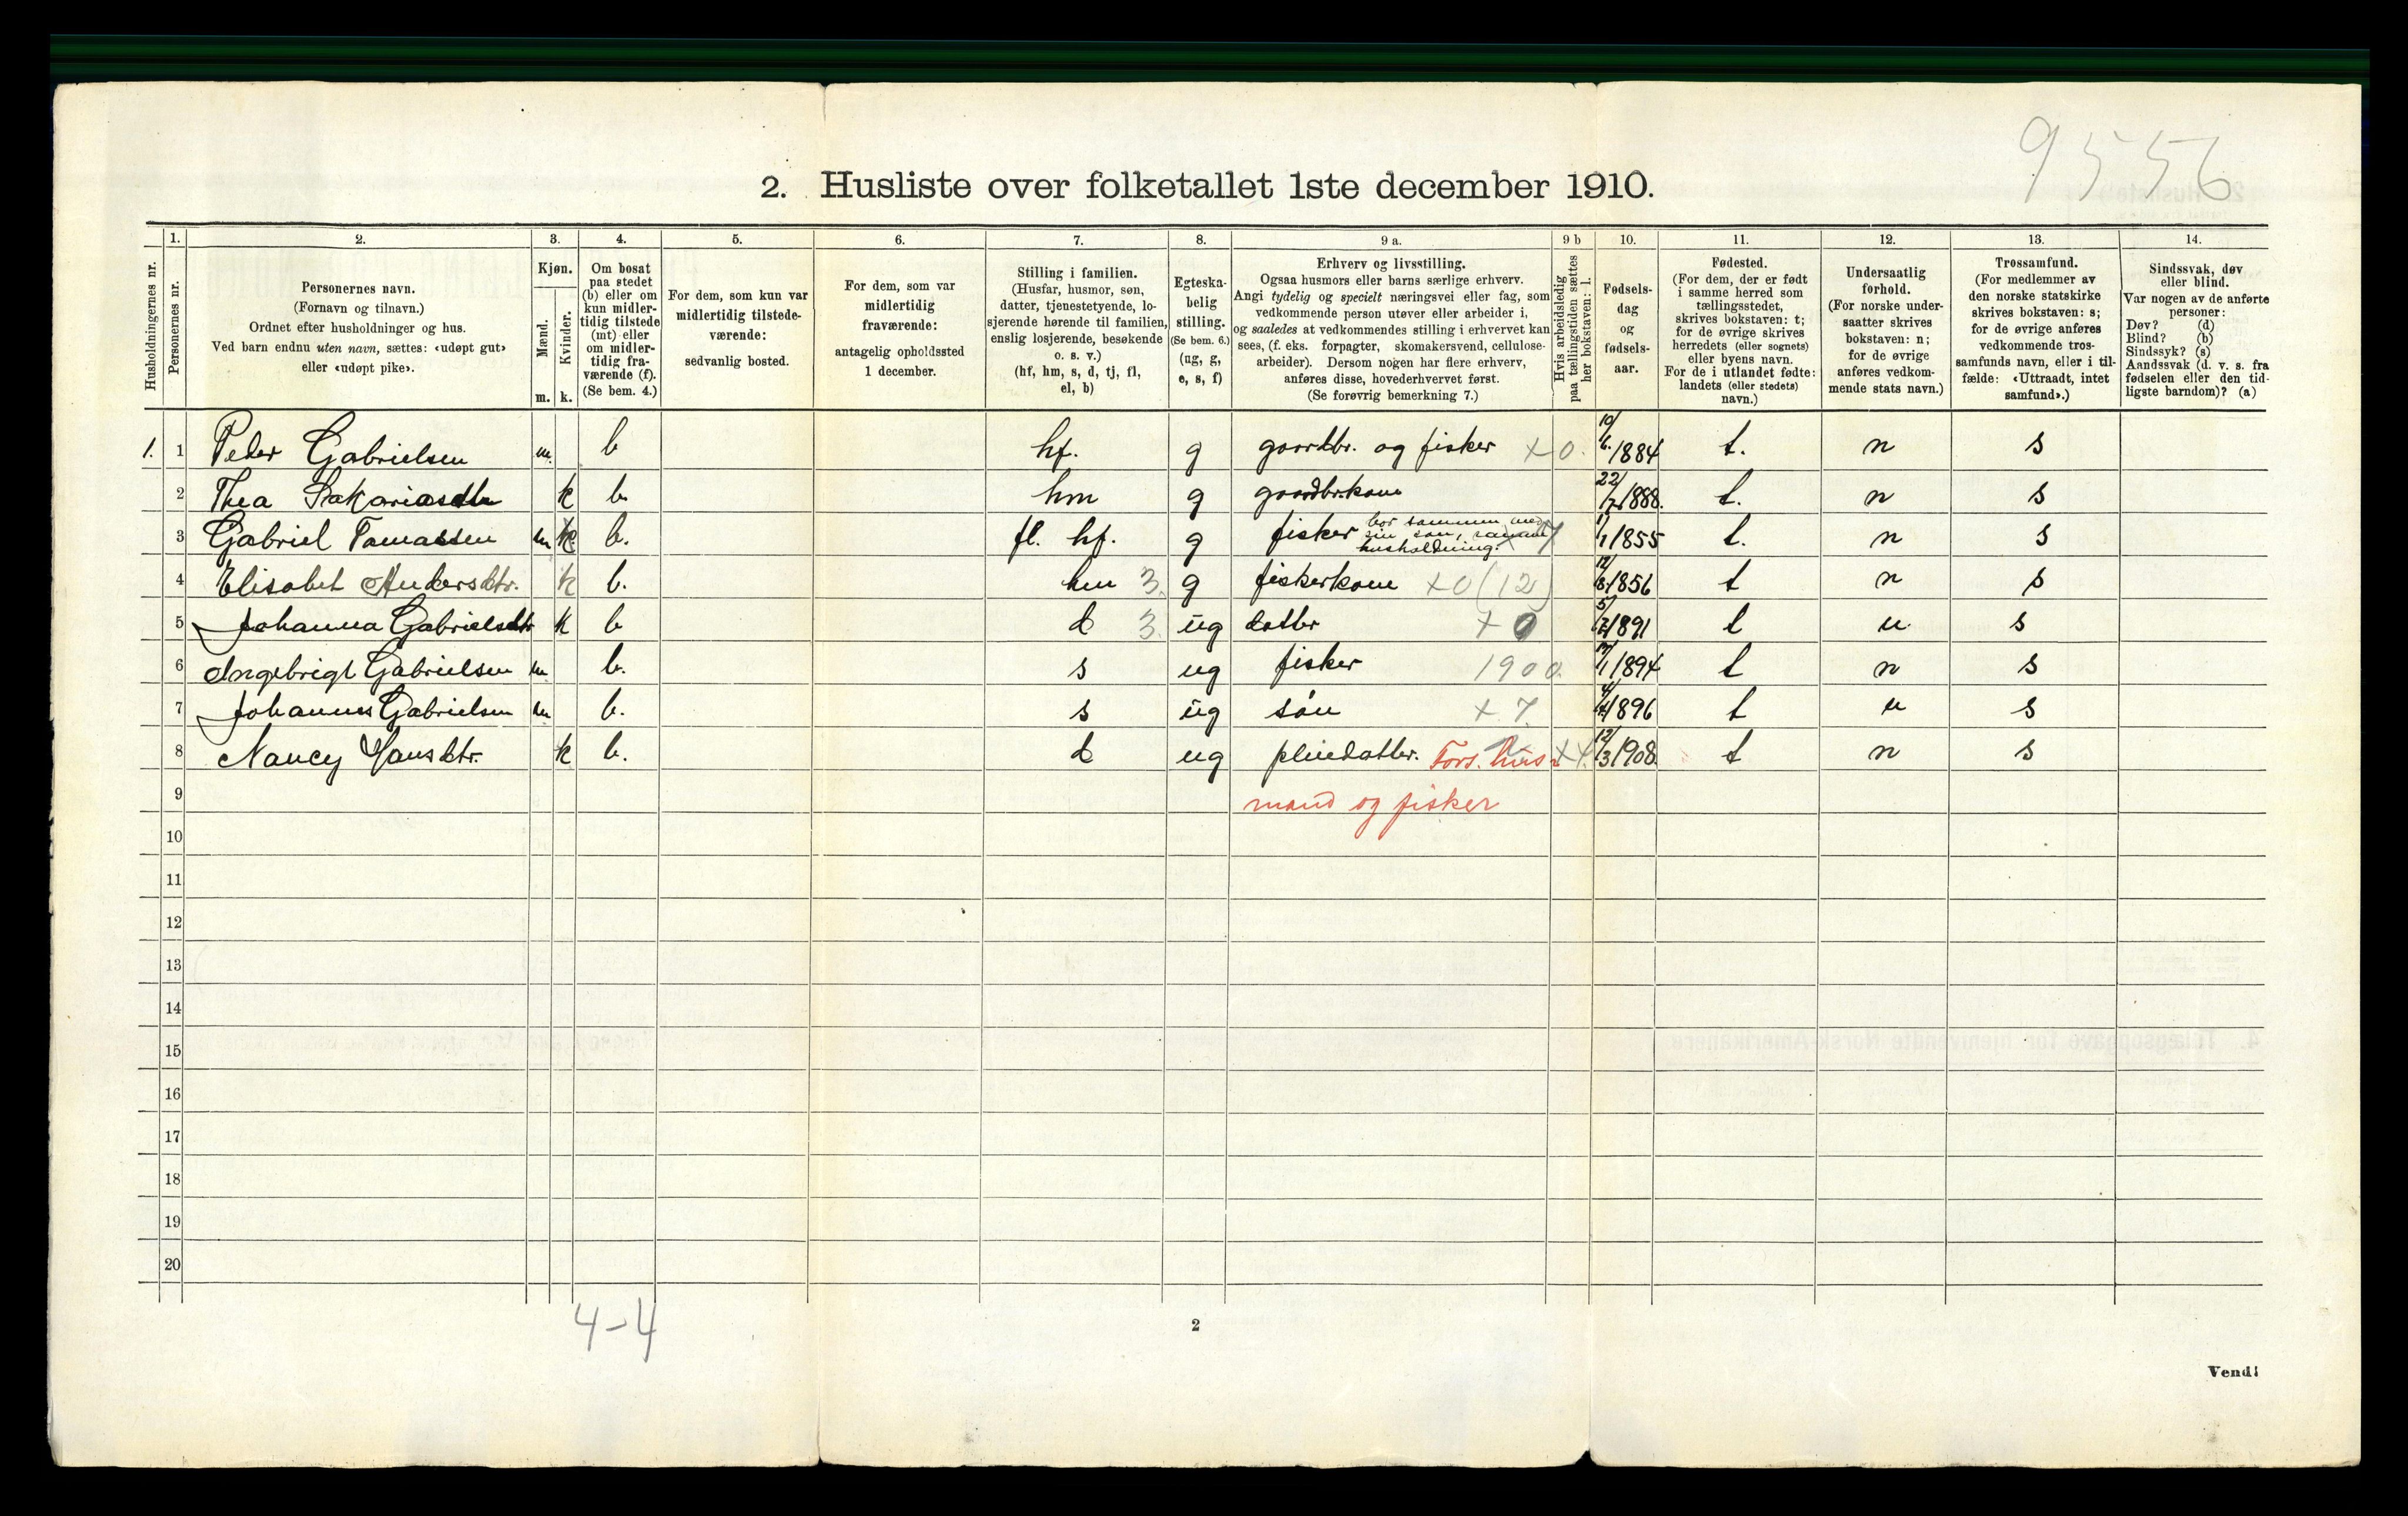 9556
2. Husliste over folketallet 1ste december 1910.
Husholdningernes nr.
1.
Personernes nr.
2.
Personernes navn.
(Fornavn og tilnavn.)
Ordnet efter husholdninger og hus.
Ved barn endnu uten navn, sættes: «udøpt gut»
eller «udøpt pike».
3.
Kjøn.
Mænd.
Kvinder.
m. k.
4.
Om bosat
paa stedet
(b) eller om
kun midler-
tidig tilstede
(mt) eller
om midler-
tidig fra-
værende (f).
(Se bem. 4.)
5.
For dem, som kun var
midlertidig tilstede-
værende:
sedvanlig bosted.
6.
For dem, som var
midlertidig
fraværende:
antagelig opholdssted
1 december.
7.
Stilling i familien.
(Husfar, husmor, søn,
datter, tjenestetyende, lo-
sjerende hørende til familien,
enslig losjerende, besøkende
o. s. v.)
(hf, hm, s, d, tj, fl,
el, b)
8.
Egteska-
belig
stilling.
(Se bem. 6.)
(ug, g,
e, s, f)
9 a.
Erhverv og livsstilling.
Ogsaa husmors eller barns særlige erhverv.
Angi tydelig og specielt næringsvei eller fag, som
vedkommende person utøver eller arbeider i,
og saaledes at vedkommendes stilling i erhvervet kan
sees, (f. eks. forpagter, skomakersvend, cellulose-
arbeider). Dersom nogen har flere erhverv,
anføres disse, hovederhvervet først.
(Se forøvrig bemerkning 7.)
9 b
Hvis arbeidsledig
paa tællingstiden sættes
her bokstaven: l.
10.
Fødsels-
dag
og
fødsels-
aar.
11.
Fødested.
(For dem, der er født
i samme herred som
tællingsstedet,
skrives bokstaven: t;
for de øvrige skrives
herredets (eller sognets)
eller byens navn.
For de i utlandet fødte:
landets (eller stedets)
navn.)
12.
Undersaatlig
forhold.
(For norske under-
saatter skrives
bokstaven: n;
for de øvrige
anføres vedkom-
mende stats navn.)
13.
Trossamfund.
(For medlemmer av
den norske statskirke
skrives bokstaven: s;
for de øvrige anføres
vedkommende tros-
samfunds navn, eller i til-
fælde: «Uttraadt, intet
samfund».)
14.
Sindssvak, døv
eller blind.
Var nogen av de anførte
personer:
Døv? (d)
Blind? (b)
Sindssyk? (s)
Aandssvak (d. v. s. fra
fødselen eller den tid-
ligste barndom)? (a)
1. 1 Peder Gabrielsen m. b hf. g gaardbr. og fisker x 0. 10/6 1884 t. n s
2 Thea Sakariasdtr k b. hm g gaardbr.kone 22/7 1888. t. n s
3 Gabriel Tomassen m k b. fl. hf. g fisker bor sammen med sin søn, samme husholdning. x 7 1/1 1855 t. n s
4 Elisabet Andersdtr. k b. hm 3. g fiskerkone x0 (12) 12/8 1856 t n s
5 Johanna Gabrielsdtr k b d 3. ug datter x 0 5/7 1891 t n s
6 Ingebrigt Gabrielsen m b. s ug fisker 1900. /1 1894 t n s
7 Johannes Gabrielsen m b. s ug søn x 7. 4/4 1896 t n s
8 Nancy Hansdtr. k b. d ug pleiedatter. Fors. hus- x4. 12/3 1908 t n s
9 mand og fisker
10
11
12
13
14
15
16
17
18
19
20
4-4
2
Vend!